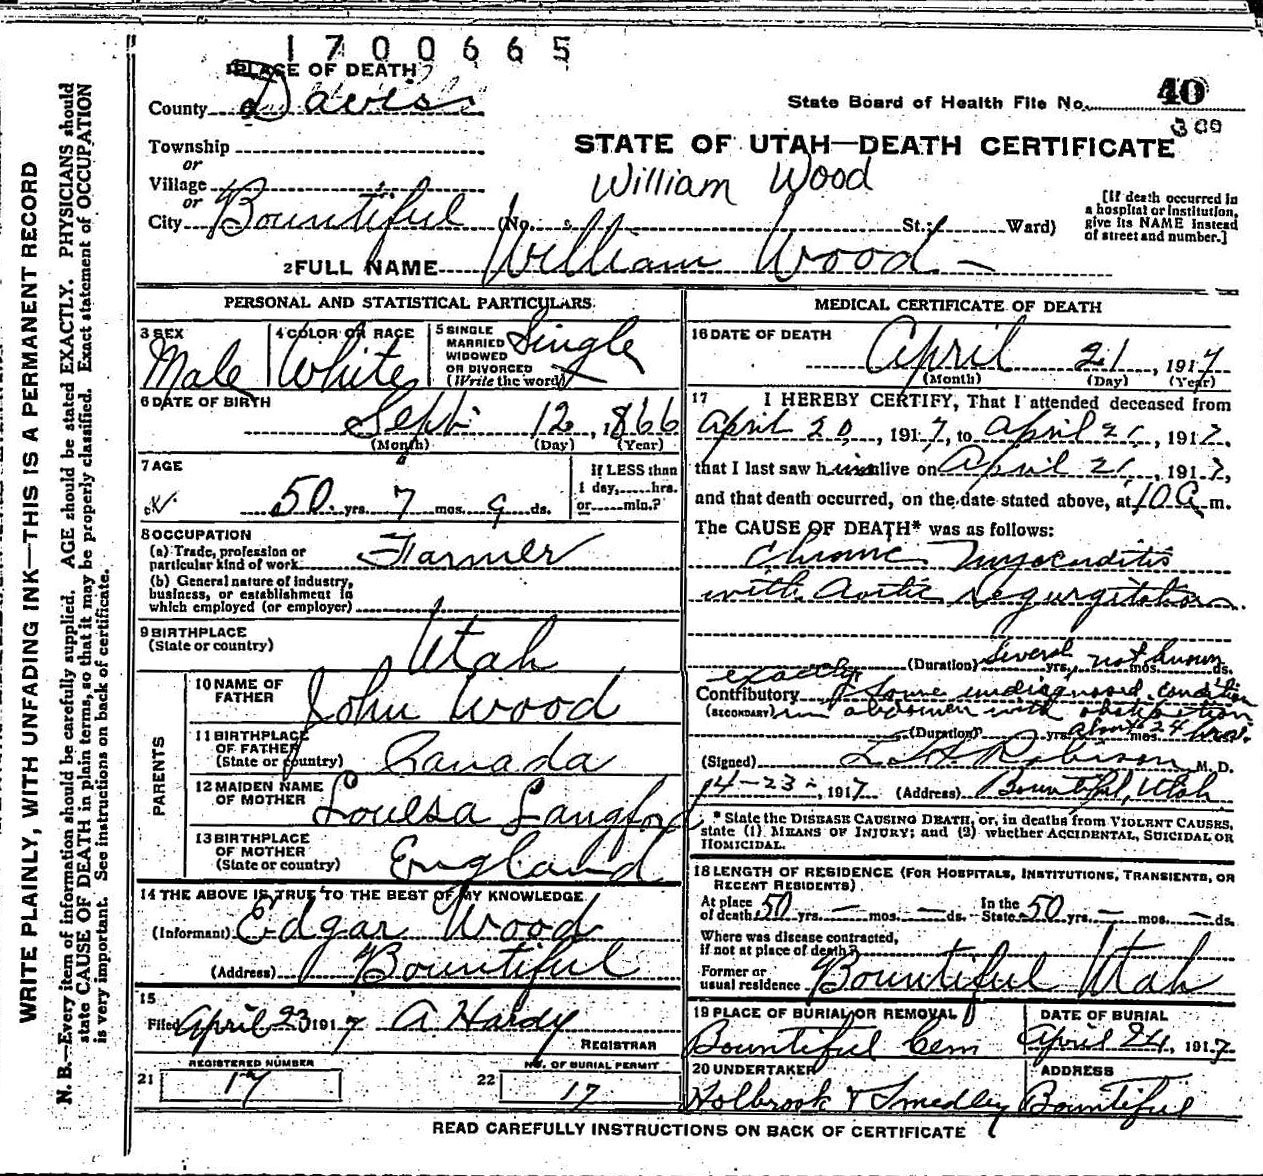 1700665
PLACE OF DEATH
County Davis
State Board of Health File No. 40
300
Township
or
Village
or
City Bountiful (No. St.; Ward)
STATE OF UTAH—DEATH CERTIFICATE
William Wood
[If death occurred in
a hospital or institution,
give its NAME instead
of street and number.]
2 FULL NAME William Wood
WRITE PLAINLY, WITH UNFADING INK—THIS IS A PERMANENT RECORD
N. B.—Every item of information should be carefully supplied. AGE should be stated EXACTLY. PHYSICIANS should
state CAUSE OF DEATH in plain terms, so that it may be properly classified. Exact statement of OCCUPATION
is very important. See instructions on back of certificate.
PERSONAL AND STATISTICAL PARTICULARS
3 SEX
Male
4 COLOR OR RACE
White
5 SINGLE
MARRIED
WIDOWED
OR DIVORCED
(Write the word)
Single
6 DATE OF BIRTH
Sept 12, 1866
(Month) (Day) (Year)
7 AGE
50 yrs. 7 mos. 9 ds.
If LESS than
1 day,.....hrs.
or.....min.?
8 OCCUPATION
(a) Trade, profession or
particular kind of work Farmer
(b) General nature of industry,
business, or establishment in
which employed (or employer)
9 BIRTHPLACE
(State or country) Utah
PARENTS
10 NAME OF
FATHER John Wood
11 BIRTHPLACE
OF FATHER
(State or country) Canada
12 MAIDEN NAME
OF MOTHER Louesa Langford
13 BIRTHPLACE
OF MOTHER
(State or country) England
14 THE ABOVE IS TRUE TO THE BEST OF MY KNOWLEDGE
(Informant) Edgar Wood
(Address) Bountiful
15
Filed April 23 1917 A Hardy
REGISTRAR
REGISTERED NUMBER
21 17
NO. OF BURIAL PERMIT
22 17
MEDICAL CERTIFICATE OF DEATH
16 DATE OF DEATH
April 21, 1917
(Month) (Day) (Year)
17 I HEREBY CERTIFY, That I attended deceased from
April 20, 1917, to April 21, 1917,
that I last saw him alive on April 21, 1917,
and that death occurred, on the date stated above, at 10 a m.
The CAUSE OF DEATH* was as follows:
Chronic Myocarditis
with Aortic regurgitation
(Duration) Several yrs. not known mos. ds.
exactly
Contributory Some undiagnosed condition
(SECONDARY) in abdomen with obstipation
(Duration) yrs. about 24 mos. hrs.
(Signed) Robison M. D.
4-23-, 1917 (Address) Bountiful, Utah
* State the DISEASE CAUSING DEATH, or, in deaths from VIOLENT CAUSES,
state (1) MEANS OF INJURY; and (2) whether ACCIDENTAL, SUICIDAL OR
HOMICIDAL.
18 LENGTH OF RESIDENCE (FOR HOSPITALS, INSTITUTIONS, TRANSIENTS, OR
RECENT RESIDENTS)
At place
of death 50 yrs. — mos. — ds.
In the
State 50 yrs. — mos. — ds.
Where was disease contracted,
if not at place of death?
Former or
usual residence Bountiful Utah
19 PLACE OF BURIAL OR REMOVAL
Bountiful Cem
DATE OF BURIAL
April 24, 1917
20 UNDERTAKER
Holbrook & Smedley
ADDRESS
Bountiful
READ CAREFULLY INSTRUCTIONS ON BACK OF CERTIFICATE